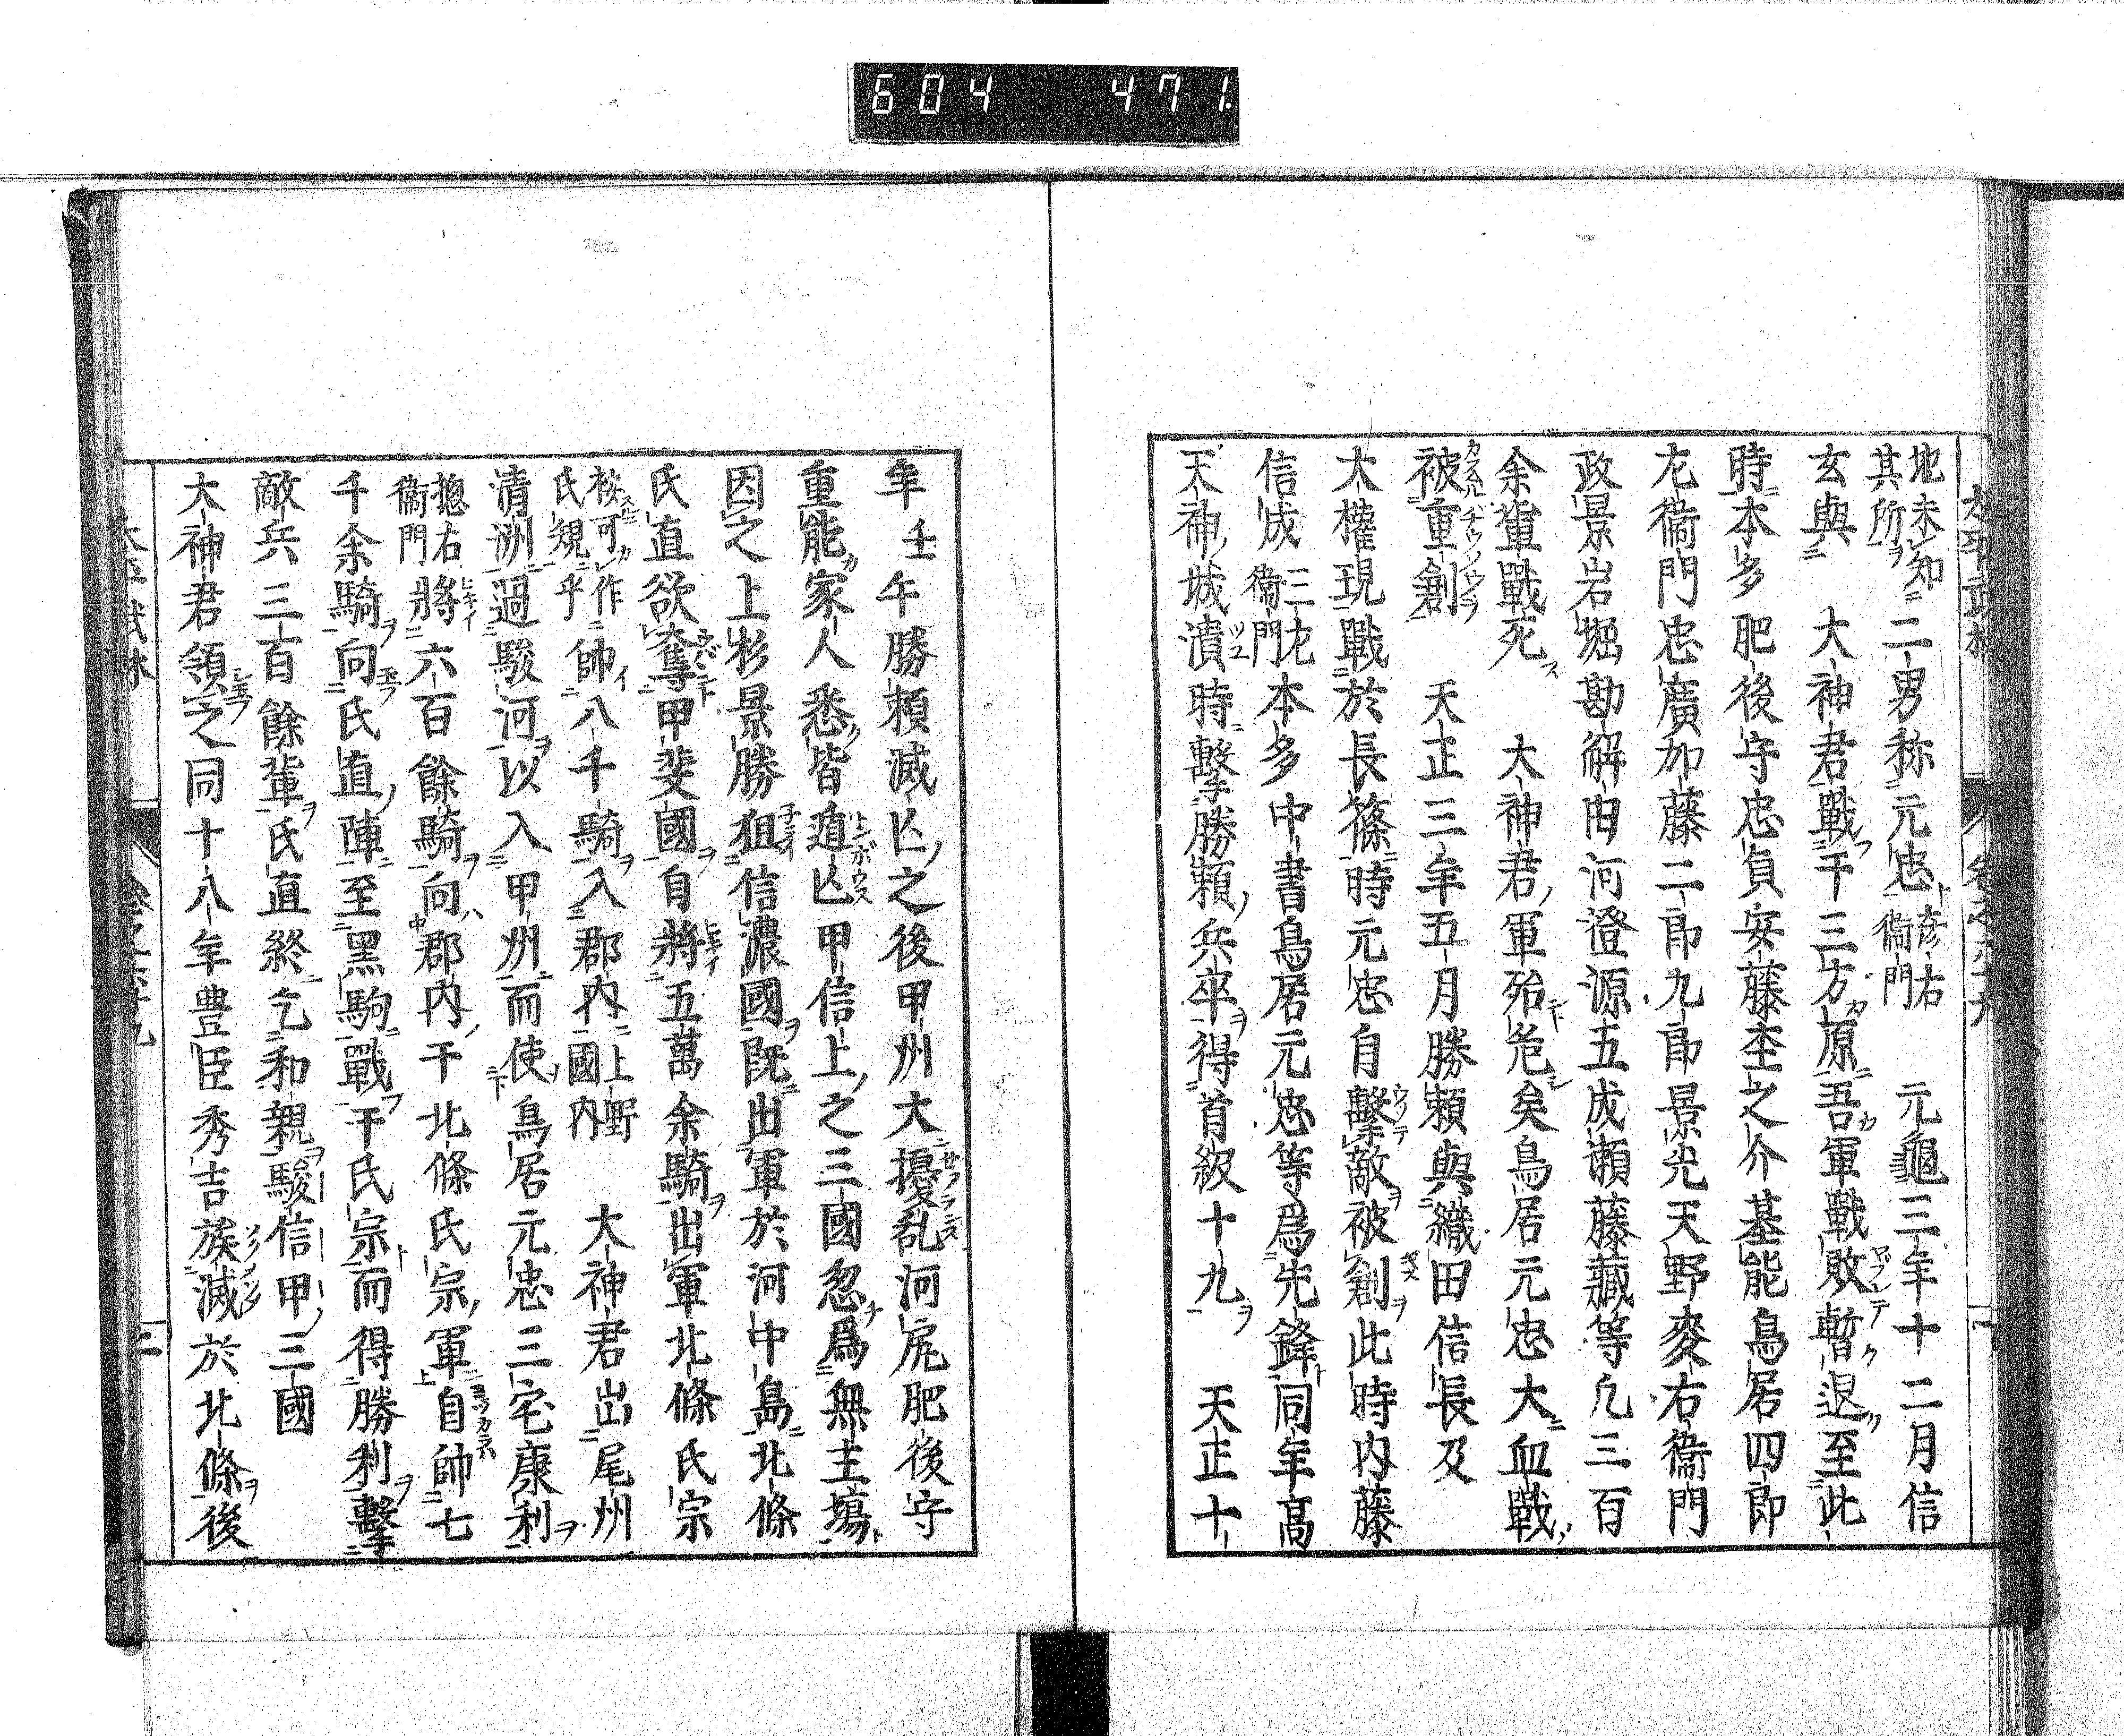 604 471
地未知其所二男称元忠彦右衞門 元龜三年十二月信
玄與 大神君戰于三方原吾軍戰敗暫退至此
時本多肥後守忠負安藤杢之介基能鳥居四郎
左衞門忠廣加藤二郎九郎景光天野麥右衞門
政景岩堀勘解由河澄源五成瀬藤藏等凢三百
余輩戰死 大神君軍殆危矣鳥居元忠大血戰
被重創 天正三年五月勝頼與織田信長及
大權現戰於長篠時元忠自擊敵被創此時内藤
信成三左衞門本多中書鳥居元忠等爲先鋒同年高
天神城潰時擊勝頼兵卒得首級十九 天正十
年壬午勝頼滅亾之後甲州大擾乱河尻肥後守
重能家人悉皆遁亾甲信上之三國忽爲無主塲
因之上杉景勝狙信濃國既出軍於河中島北條
氏直欲奪甲斐國自將五萬余騎出軍北條氏宗
按可作氏規乎帥八千騎入郡内上野國内 大神君出尾州
清洲過駿河以入甲州而使鳥居元忠三宅康利
揔右衞門將六百餘騎向郡内于北條氏宗軍自帥七
千余騎向氏直陣至黑駒戰于氏宗而得勝利擊
敵兵三百餘輩氏直終乞和親駿信甲三國
大神君領之同十八年豊臣秀吉族滅於北條後